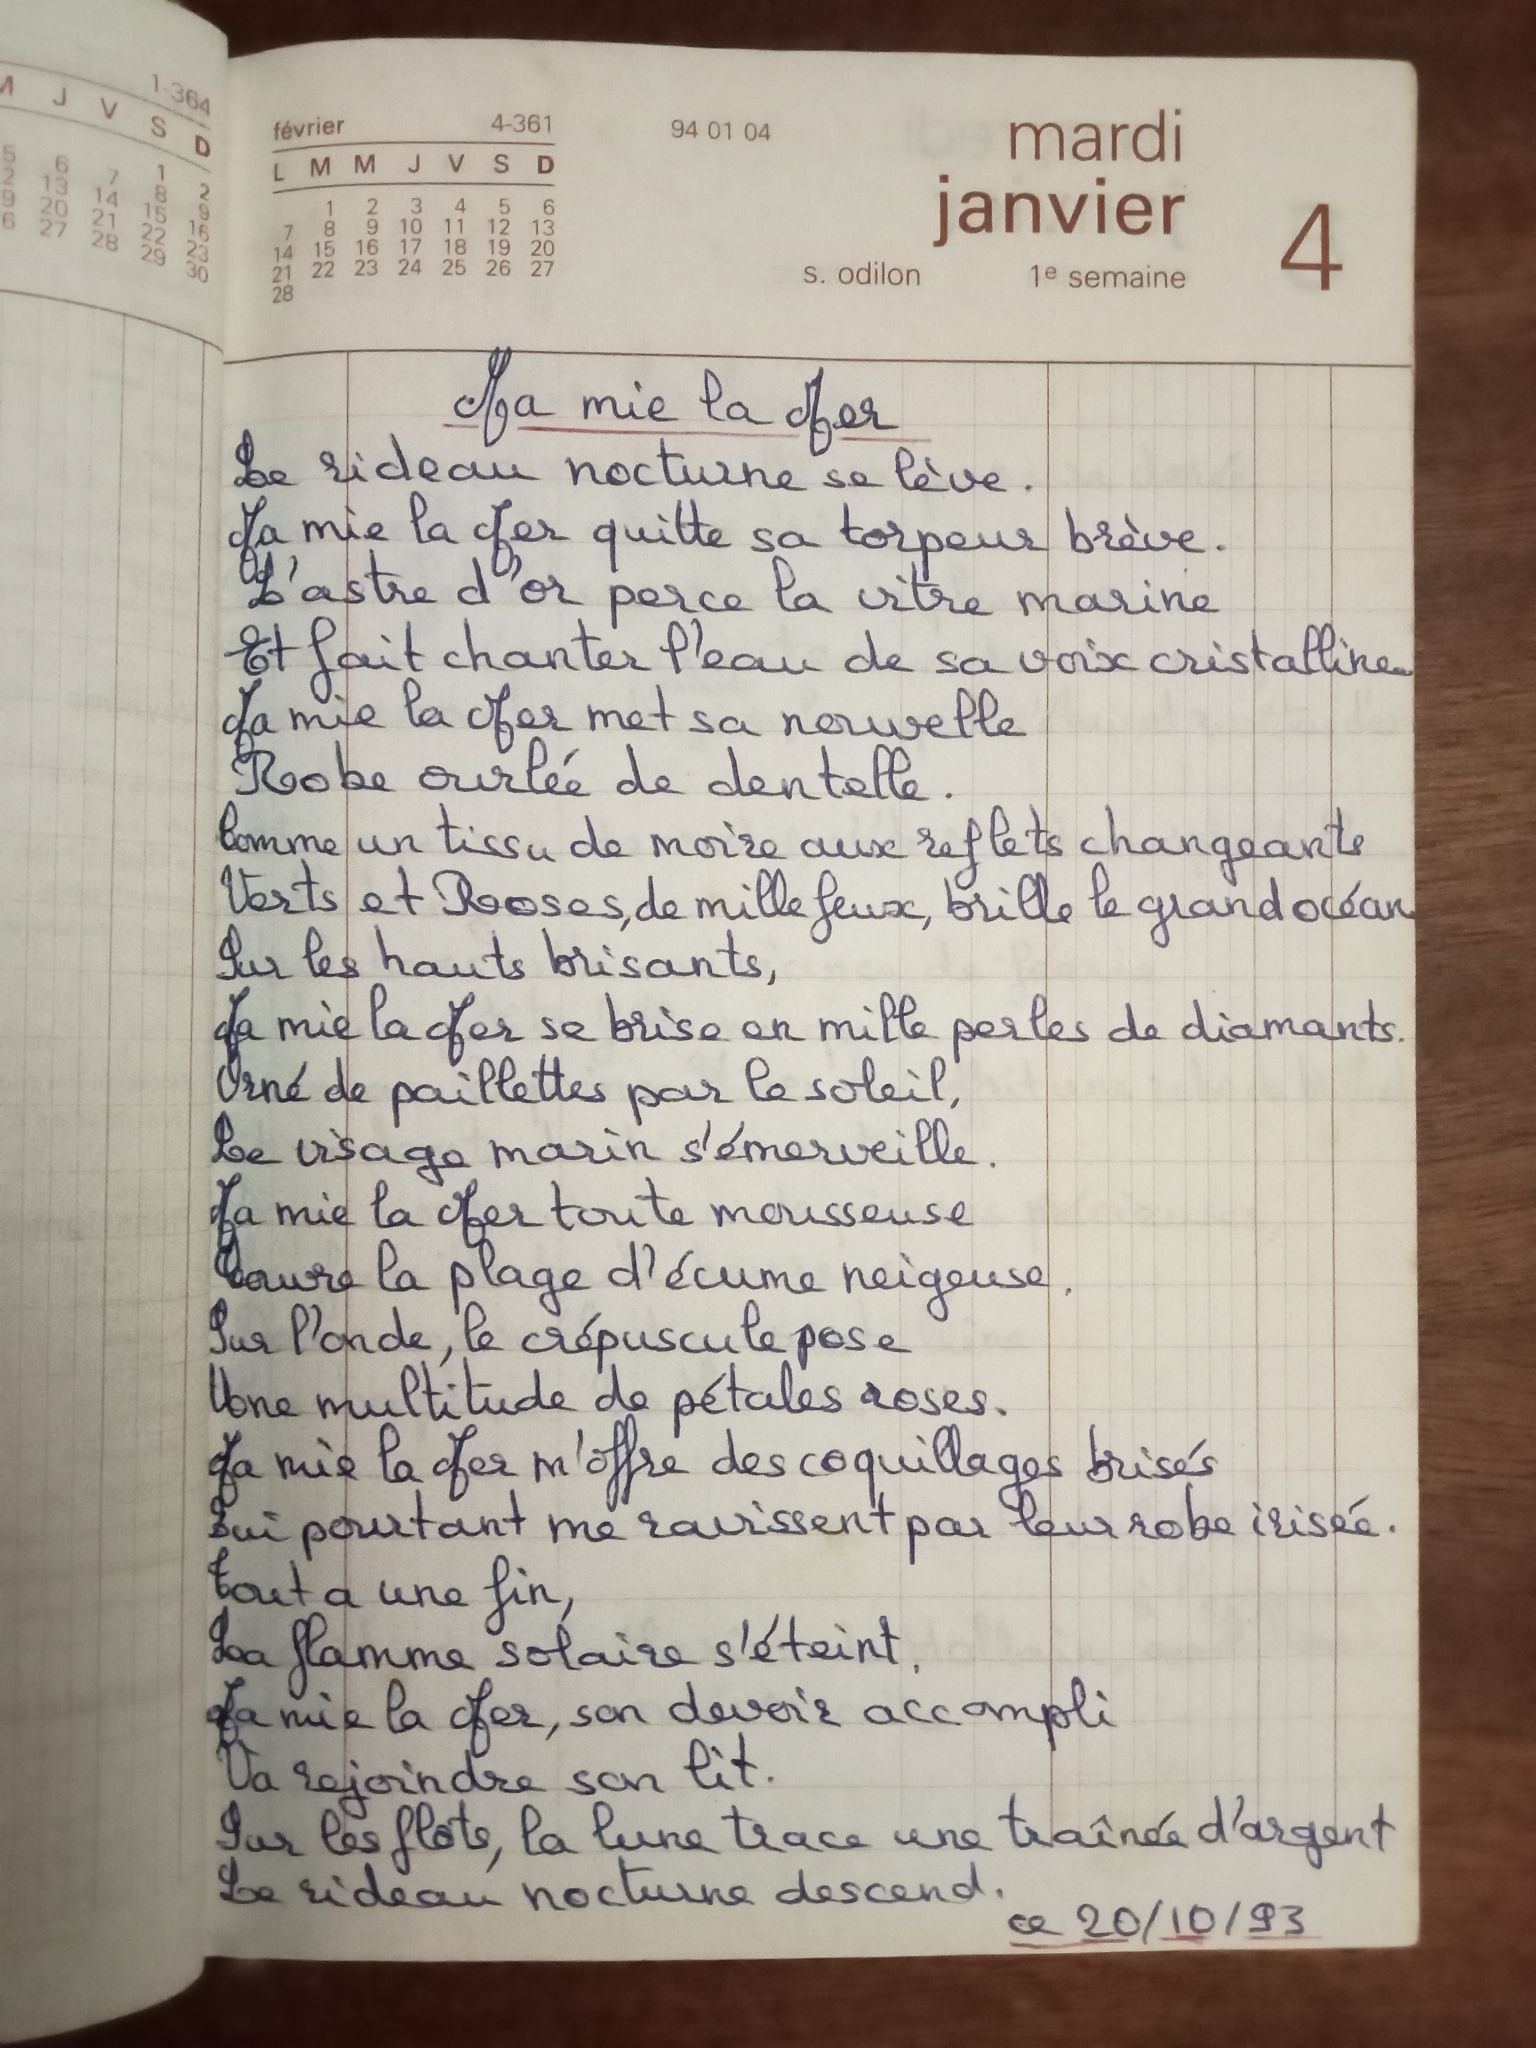 M J V S D
1-364
1 2
5 6 7 8 9
2 13 14 15 16
9 20 21 22 23
6 27 28 29 30
février 4-361
L M M J V S D
1 2 3 4 5 6
7 8 9 10 11 12 13
14 15 16 17 18 19 20
21 22 23 24 25 26 27
28
94 01 04
mardi
janvier 4
s. odilon 1e semaine
Ma mie la Mer
Le rideau nocturne se lève.
Ma mie la Mer quitte sa torpeur brève.
L'astre d'or perce la vitre marine
Et fait chanter l'eau de sa voix cristalline.
Ma mie la Mer met sa nouvelle
Robe ourlée de dentelle.
Comme un tissu de moire aux reflets changeants
Verts et Roses, de mille feux, brille le grand océan.
Sur les hauts brisants,
Ma mie la Mer se brise en mille perles de diamants.
Orné de paillettes par le soleil,
Le visage marin s'émerveille.
Ma mie la Mer toute mousseuse
Couvre la plage d'écume neigeuse.
Sur l'onde, le crépuscule pose
Une multitude de pétales roses.
Ma mie la Mer m'offre des coquillages brisés
Qui pourtant me ravissent par leur robe irisée.
Tout a une fin,
La flamme solaire s'éteint.
Ma mie la Mer, son devoir accompli
Va rejoindre son lit.
Sur les flots, la lune trace une traînée d'argent
Le rideau nocturne descend.
ce 20/10/93